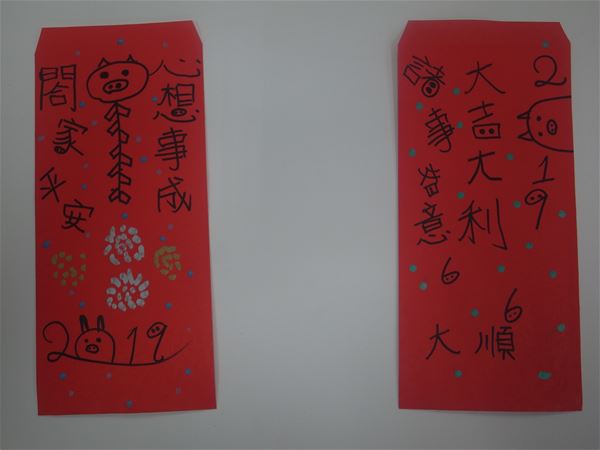 心想事成
閤家平安
2019
2019
大吉大利
諸事意
66
大順